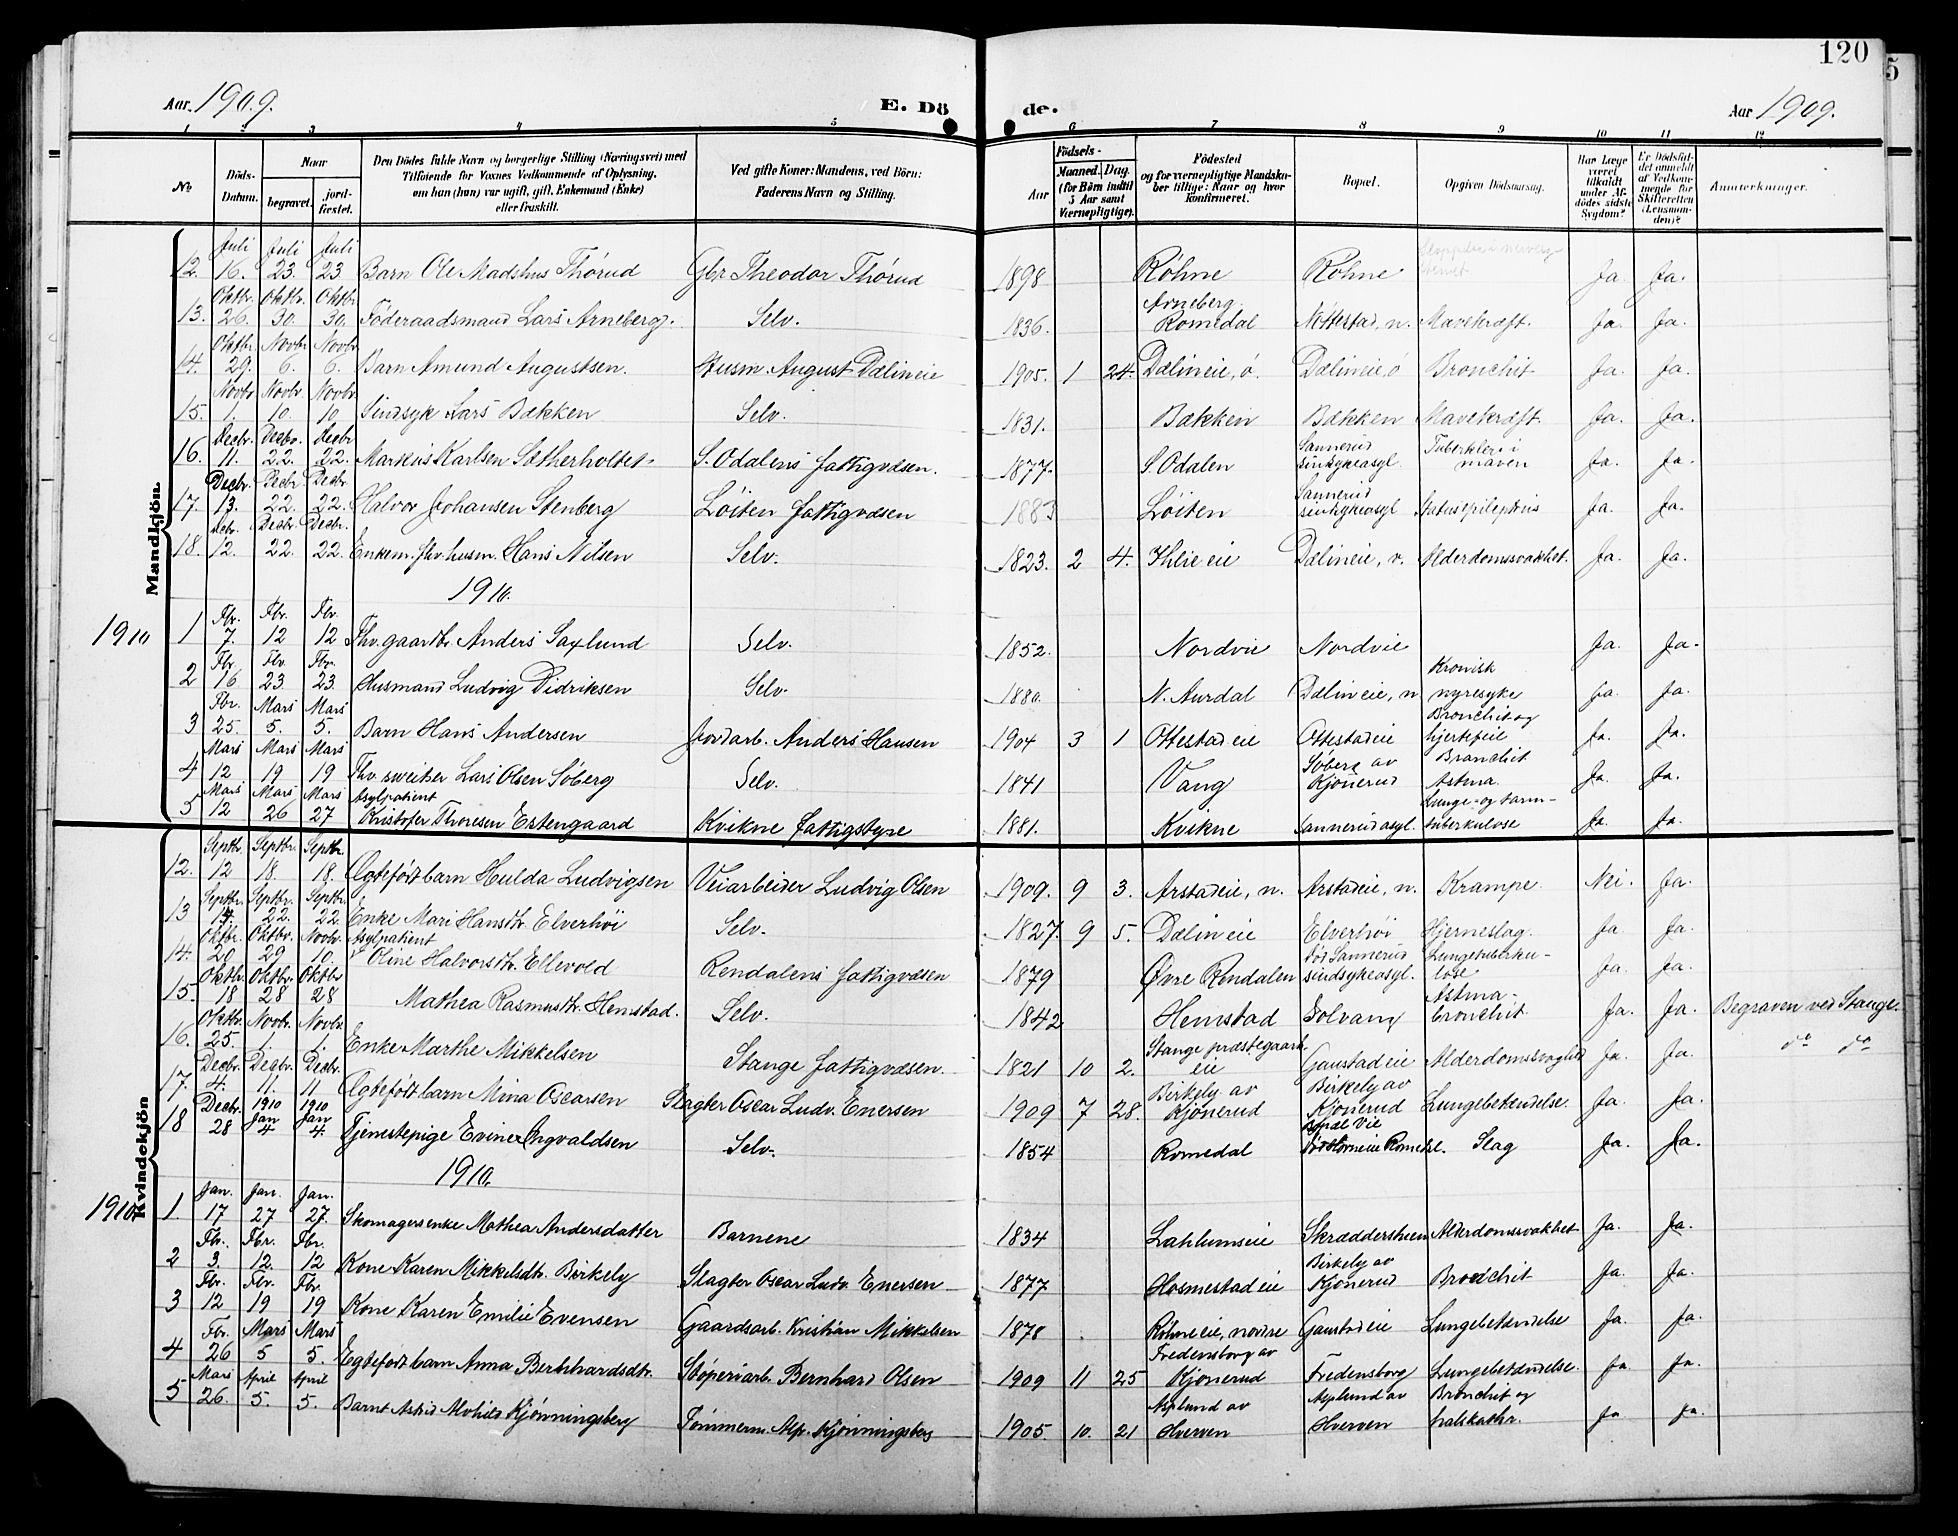 120
5
Aar 1909.
E. Dö
de.
Aar 1909.
1 2 3 4 5 6 7 8 9 10 11 12
No
Döds-Datum.
Naar
begravet.
jord-fæstet.
Den Dödes fulde Navn og borgerlige Stilling (Næringsvei) med
Tilföiende for Voxnes Vedkommende af Oplysning,
om han (hun) var ugift, gift, Enkemand (Enke)
eller fraskilt.
Ved gifte Koner: Mandens, ved Börn:
Faderens Navn og Stilling.
Födsels-
Aar
Maaned. Dag.
(for Börn indtil
5 Aar samt
Værnepligtige).
Födested
og for værnepligtige Mandska-
ber tillige: Naar og hvor
konfirmeret.
Bopæl.
Opgiven Dödsaarsag.
Har Læge
været
tilkaldt
under Af-
dödes sidste
Sygdom?
Er Dödsfal-
det anmeldt
af Vedkom-
mende for
Skifteretten
(Lensman-
den)?
Anmærkninger.
Mandkjön.
12. Juli 16. Juli 23. Juli 23 Barn Ole Madshus Thórud Gbr. Theodor Thórud 1898 Róhne Rohne Ja. Ja.
13. Oktbr. 26. Oktbr. 30. Oktbr 30. Föderaadsmand Lars Arneberg. Selv. 1836. Arneberg. Romedal Nöttestad, n. Mavekræft. Ja. Ja.
14. Oktbr. 29. Novbr 6. Novbr. 6. Barn Amund Augustsen. Husm. August Dælineie 1905. 1 24. Dælineie, ö. Dælineie, ö Bronchit Ja. Ja.
15. Novbr 1. Novbr. 10. Novbr. 10 Sindsyk Lars Bækken Selv. 1831. Bækken Bækken Mavekræft. Ja. Ja.
16. Decbr. 11. Decbr. 22. Decbr 22. Markus Karlsen Sætherholtet S. Odalens fattigvæsen. 1877. S. Odalen Sannerud sindsykeasyl. Tuberkler i maven Ja. Ja.
17. Decbr. 13. Decbr 22. Decbr. 22. Halvor Johansen Stenberg Löiten fattigvæsen 1883 Löiten Sannerud sindsykeasyl Status epilepticus Ja. Ja.
18. Decbr. 12. Decbr. 22. Decbr. 22. Enkem. fhv. husm. Hans Nilsen Selv. 1823. 2 4. Ihlie eie Dælineie, v. Alderdomssvakhet. Ja. Ja.
1910.
1910 1 Fbr. 7. Fbr. 12 Fbr. 12 Fhv. gaardbr. Anders Saxlund Selv. 1852. Nordvie Nordvie Ja. Ja.
2 Fbr. 16 Fbr. 23 Fbr. 23. Husmand Ludvig Didriksen Selv. 1880. N. Aurdal Dælineie, n Kronisk nyresyke Ja. Ja.
3 Fbr. 25. Mars 5. Mars 5. Barn Hans Andersen Jordarb. Anders Hansen 1904 3 1 Ottestadeie Ottestadeie Bronchit og hjertefeil Ja. Ja.
4 Mars 12 Mars 19 Mars 19 Fhv. sveitser Lars Olsen Söberg Selv. 1841 Vang Söberg av Kjönerud Bronchit Astma. Ja. Ja.
5 Mars 12 Mars 26 Mars 27 Asylpatient Kristofer Thoresen Estengaard Kvikne fattigstyre 1881. Kvikne Sannerudasyl. Lunge- og tarm-tuberkulose Ja. Ja.
Kvindekjön
12. Septbr. 12 Septbr. 18. Septbr. 18. Ægtefödt barn Hulda Ludvigsen Veiarbeider Ludvig Olsen 1909. 9 3. Arstadeie, n. Arstadeie, n. Krampe. Nei. Ja.
13 Septbr. 14. Septbr. 22. Septbr. 22. Enke Mari Hansdtr. Elverhöi Selv. 1827. 9 5. Dælineie Elverhöi Hjerneslag. Ja Ja.
14. Oktbr. 20 Oktbr. 29 Novbr. 10. Asylpatient Oline Halvorsdtr. Ellevold Rendalens fattigvæsen 1879 Övre Rendalen Sannerud sindsykeasyl. Lungetuberku-lose Ja. Ja.
15. Oktbr. 18 Oktbr. 28 Oktbr 28 Mathea Rasmusdtr. Hemstad. Selv. 1842 Hemstad Solvang Astma-bronchit. Ja. Ja. Begraven ved Stange.
16. Oktbr 25. Novbr. 1. Novbr. 1. Enke Marthe Mikkelsen Stange fattigvæsen. 1821 10 2. Stange præstegaards-eie Gaustadeie Alderdomssvaghed Ja. Ja. do do
17. Decbr. 4. Decbr. 11. Decbr. 11. Ægtefödt barn Mina Oscarsen Slagter Oscar Ludv. Enersen 1909 7 28. Birkely av Kjönerud Birkely av Kjönerud Lungebetændelse. Ja. Ja.
18 Decbr. 28 1910 Jan 4 1910 Jan 4. Tjenestepige Evine Ingvaldsen Selv. 1854 Romedal Romedal. Slag Ja. Ja.
1910.
1910. 1. Jan. 17 Jan. 27 Jan. 27. Skomagersenke Mathea Andersdatter Barnene 1834 Lahlumseie Skræddersheim Alderdomssvakhet Ja. Ja.
2 Fbr. 3. Fbr. 12. Fbr. 12 Kone Karen Mikkelsdtr. Birkely Slagter Oscar Ludv. Enersen 1877 Hosmestadeie Birkely av Kjönerud Bronchit Ja. Ja.
3 Fbr. 12 Fbr. 19 Fbr. 19 Kone Karen Emilie Evensen Gaardsarb. Kristian Mikkelsen 1878 Rohneeie, nordre Gaustadeie Lungebetændelse Ja. Ja.
4 Fbr. 26 Mars 5 Mars 5. Egtefödt barn Anna Bernhardsdtr. Stöperiarb. Bernhard Olsen 1909 11 25 Fredensborg av Kjönerud Fredensborg Lungebetændelse. Ja. Ja.
5 Mars 26. April 5. April 5. Barnt Astrid Alvhild Kjönningsberg Tömmerm. Alf. Kjönningsberg 1905. 10. 21 Asplund av Hverven Asplund av Hverven Bronchit og halskathr. Ja Ja.